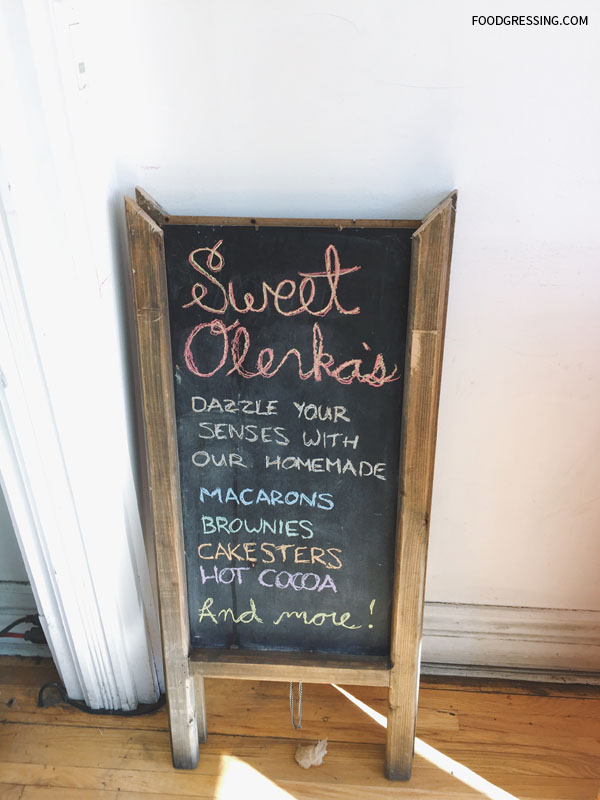 FOODGRESSING.COM
Sweet
Olenka's
DAZZLE YOUR
SENSES WITH
OUR HOMEMADE
MACARONS
BROWNIES
CAKESTERS
HOT COCOA
And more!